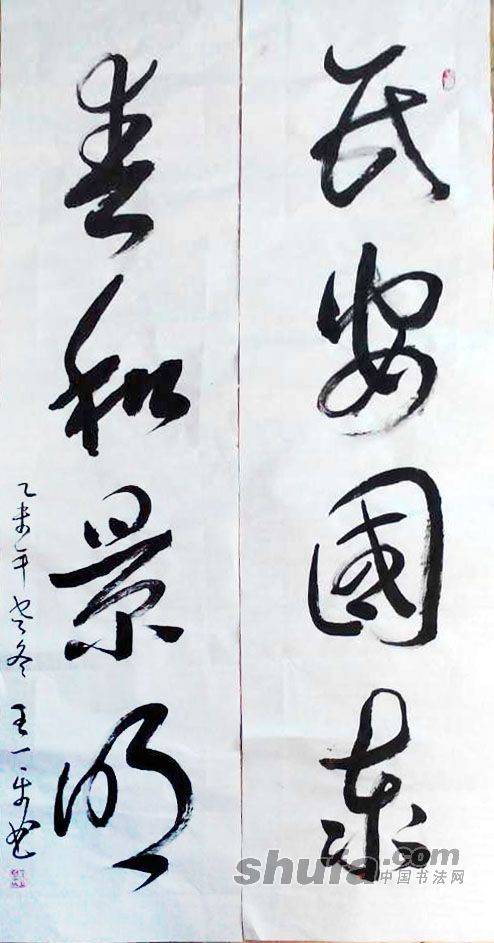 民安國泰
春和景明
乙未年 冬 王一 书
shufa.com
中国书法网